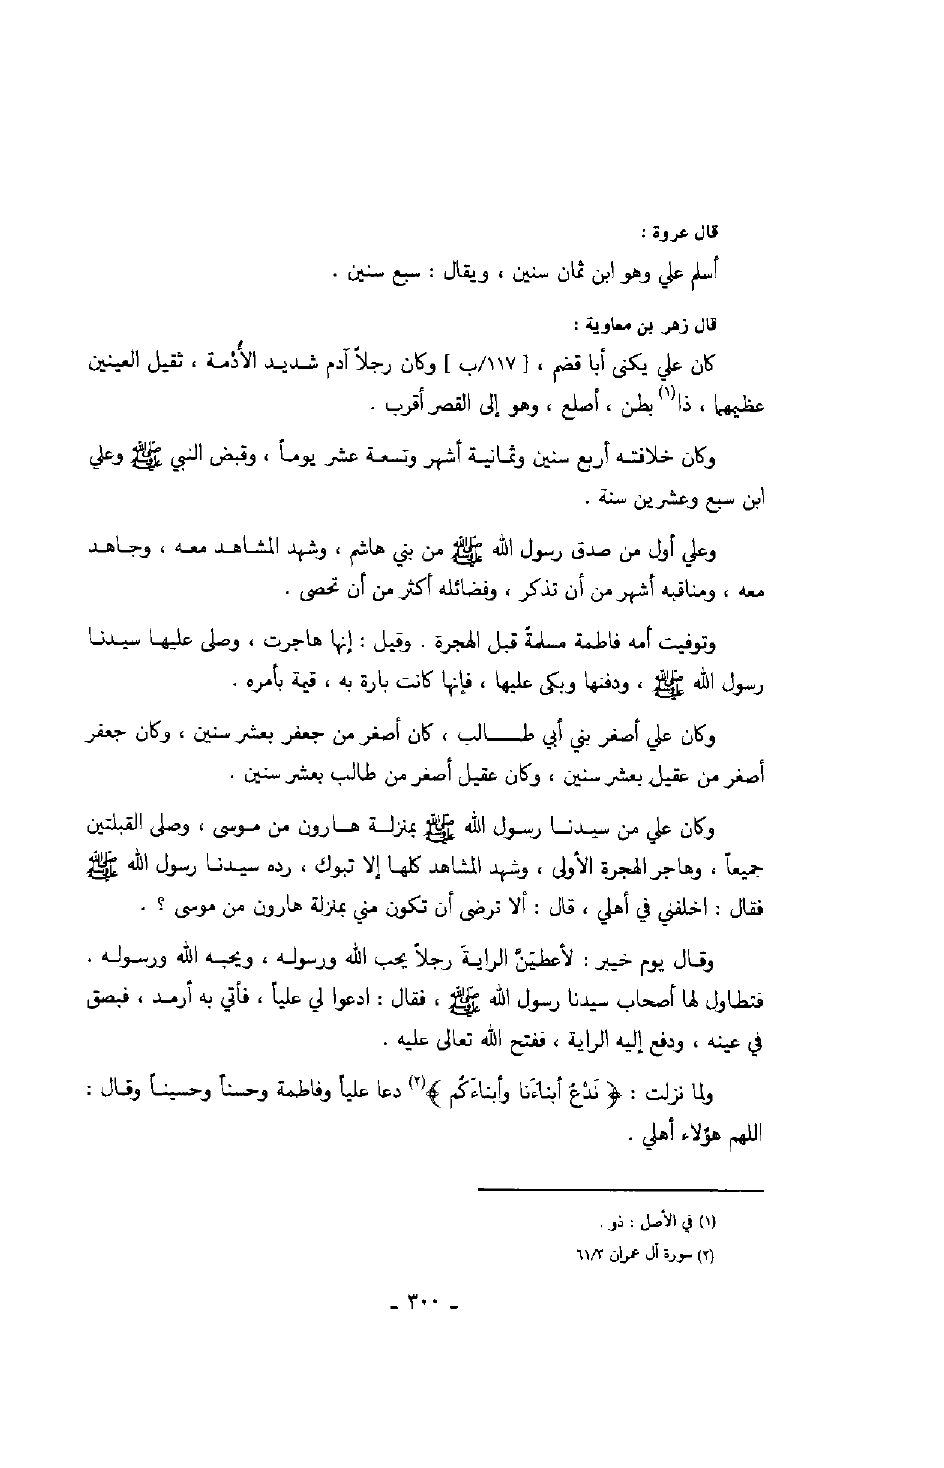 قال عروة :
أسلم علي وهو ابن ثمان سنين ، ويقال : سبع سنين .
قال زهر بن معاوية :
كان علي يكنى أبا قضم ، [ ١١٧/ب ] وكان رجلاً آدم شديد الأُدْمة ، ثقيل العينين
عظيمها ، ذا(١) بطن ، أصلع ، وهو إلى القصر أقرب .
وكان خلافته أربع سنين وثمانية أشهر وتسعة عشر يوماً ، وقبض النبي ﷺ وعلي
ابن سبع وعشرين سنة .
وعلي أول من صدق رسول الله ﷺ من بني هاشم ، وشهد المشاهد معه ، وجاهد
معه ، ومناقبه أشهر من أن تذكر ، وفضائله أكثر من أن تحصى .
وتوفيت أمه فاطمة مسلمةً قبل الهجرة . وقيل : إنها هاجرت ، وصلى عليها سيدنا
رسول الله ﷺ ، ودفنها وبكى عليها ، فإنها كانت بارة به ، قيمة بأمره .
وكان علي أصغر بني أبي طالب ، كان أصغر من جعفر بعشر سنين ، وكان جعفر
أصغر من عقيل بعشر سنين ، وكان عقيل أصغر من طالب بعشر سنين .
وكان علي من سيدنا رسول الله ﷺ بمنزلة هارون من موسى ، وصلى القبلتين
جميعاً ، وهاجر الهجرة الأولى ، وشهد المشاهد كلها إلا تبوك ، رده سيدنا رسول الله ﷺ
فقال : اخلفني في أهلي ، قال : ألا ترضى أن تكون مني بمنزلة هارون من موسى ؟ .
وقال يوم خيبر : لأعطيَنَّ الرايةَ رجلاً يحب الله ورسوله ، ويحبه الله ورسوله .
فتطاول لها أصحاب سيدنا رسول الله ﷺ ، فقال : ادعوا لي علياً ، فأتي به أرمد ، فبصق
في عينه ، ودفع إليه الراية ، ففتح الله تعالى عليه .
ولما نزلت : ﴿ نَدْعُ أبناءَنا وأبناءَكُم ﴾(٢) دعا علياً وفاطمة وحسناً وحسيناً وقال :
اللهم هؤلاء أهلي .
(١) في الأصل : ذو .
(٢) سورة آل عمران ٦١/٣
ـ ٣٠٠ ـ